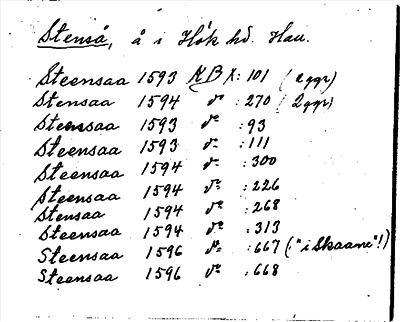 Stenså, å i Hök hd. Hau.
Steensaa 1593 KB X: 101 (2 ggr)
Stensaa 1594 do : 270 (2 ggr)
Stensaa 1593 do : 93
Steensaa 1593 do : 111
Steensaa 1594 do : 300
Steensaa 1594 do : 226
Stensaa 1594 do : 268
Steensaa 1594 do : 313
Steensaa 1596 do : 667 ("i Skaane"!)
Steensaa 1596 do : 668